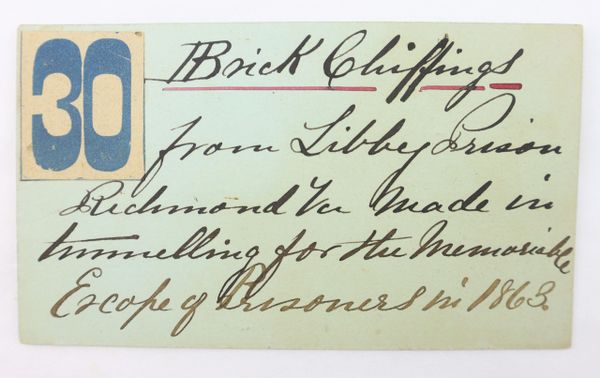 30
Brick Chippings
from Libby Prison
Richmond Va Made in
tunnelling for the Memorable
Escape of Prisoners in 1863.